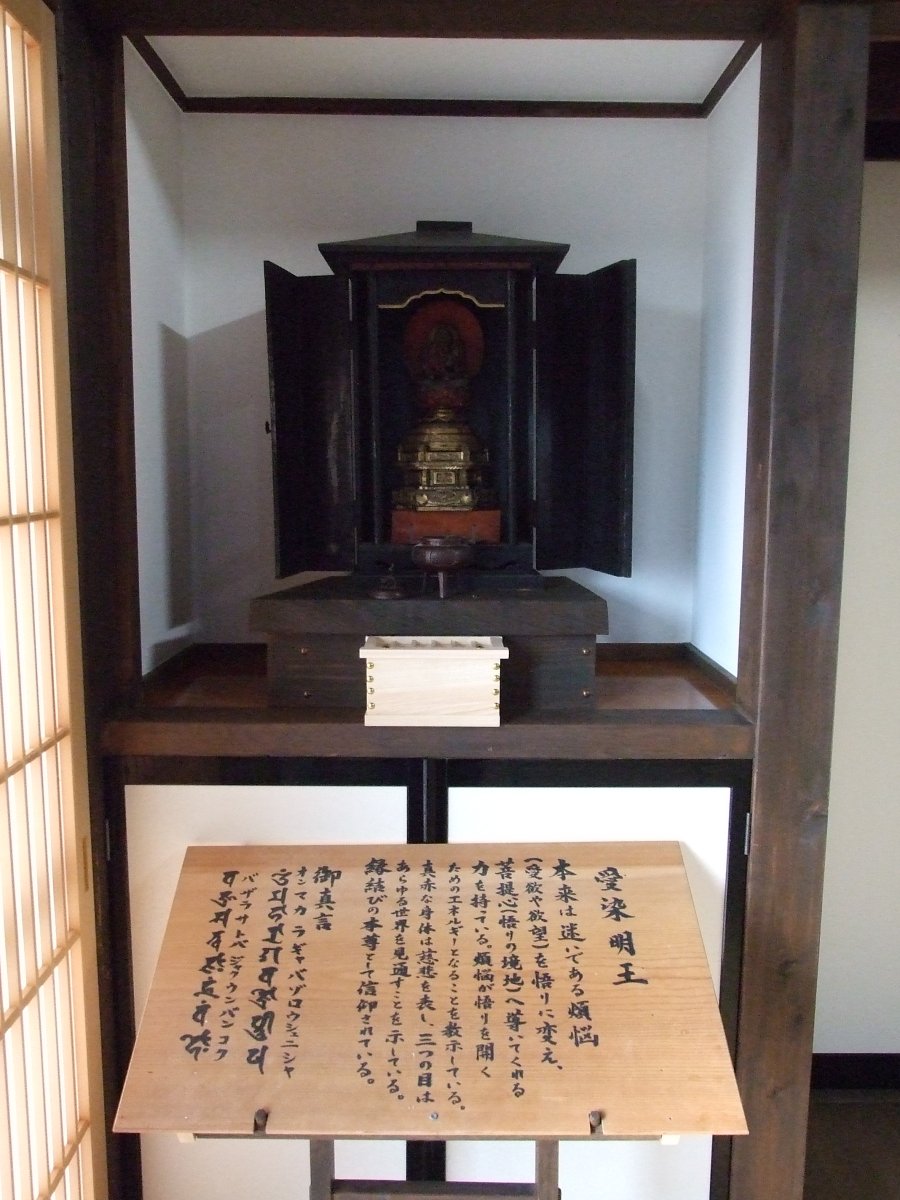 愛染明王
本来は迷いである煩悩
(愛欲や欲望)を悟りに変え、
菩提心(悟りの境地)へ導いてくれる
力を持っている。煩悩が悟りを開く
ためのエネルギーとなることを教示している。
真赤な身体は慈悲を表し、三つの目は
あらゆる世界を見通すことを示している。
縁結びの本尊として信仰されている。
御真言
オンマカ ラギャバゾロウシュニシャ
バザラサトバジャクウンバンコク